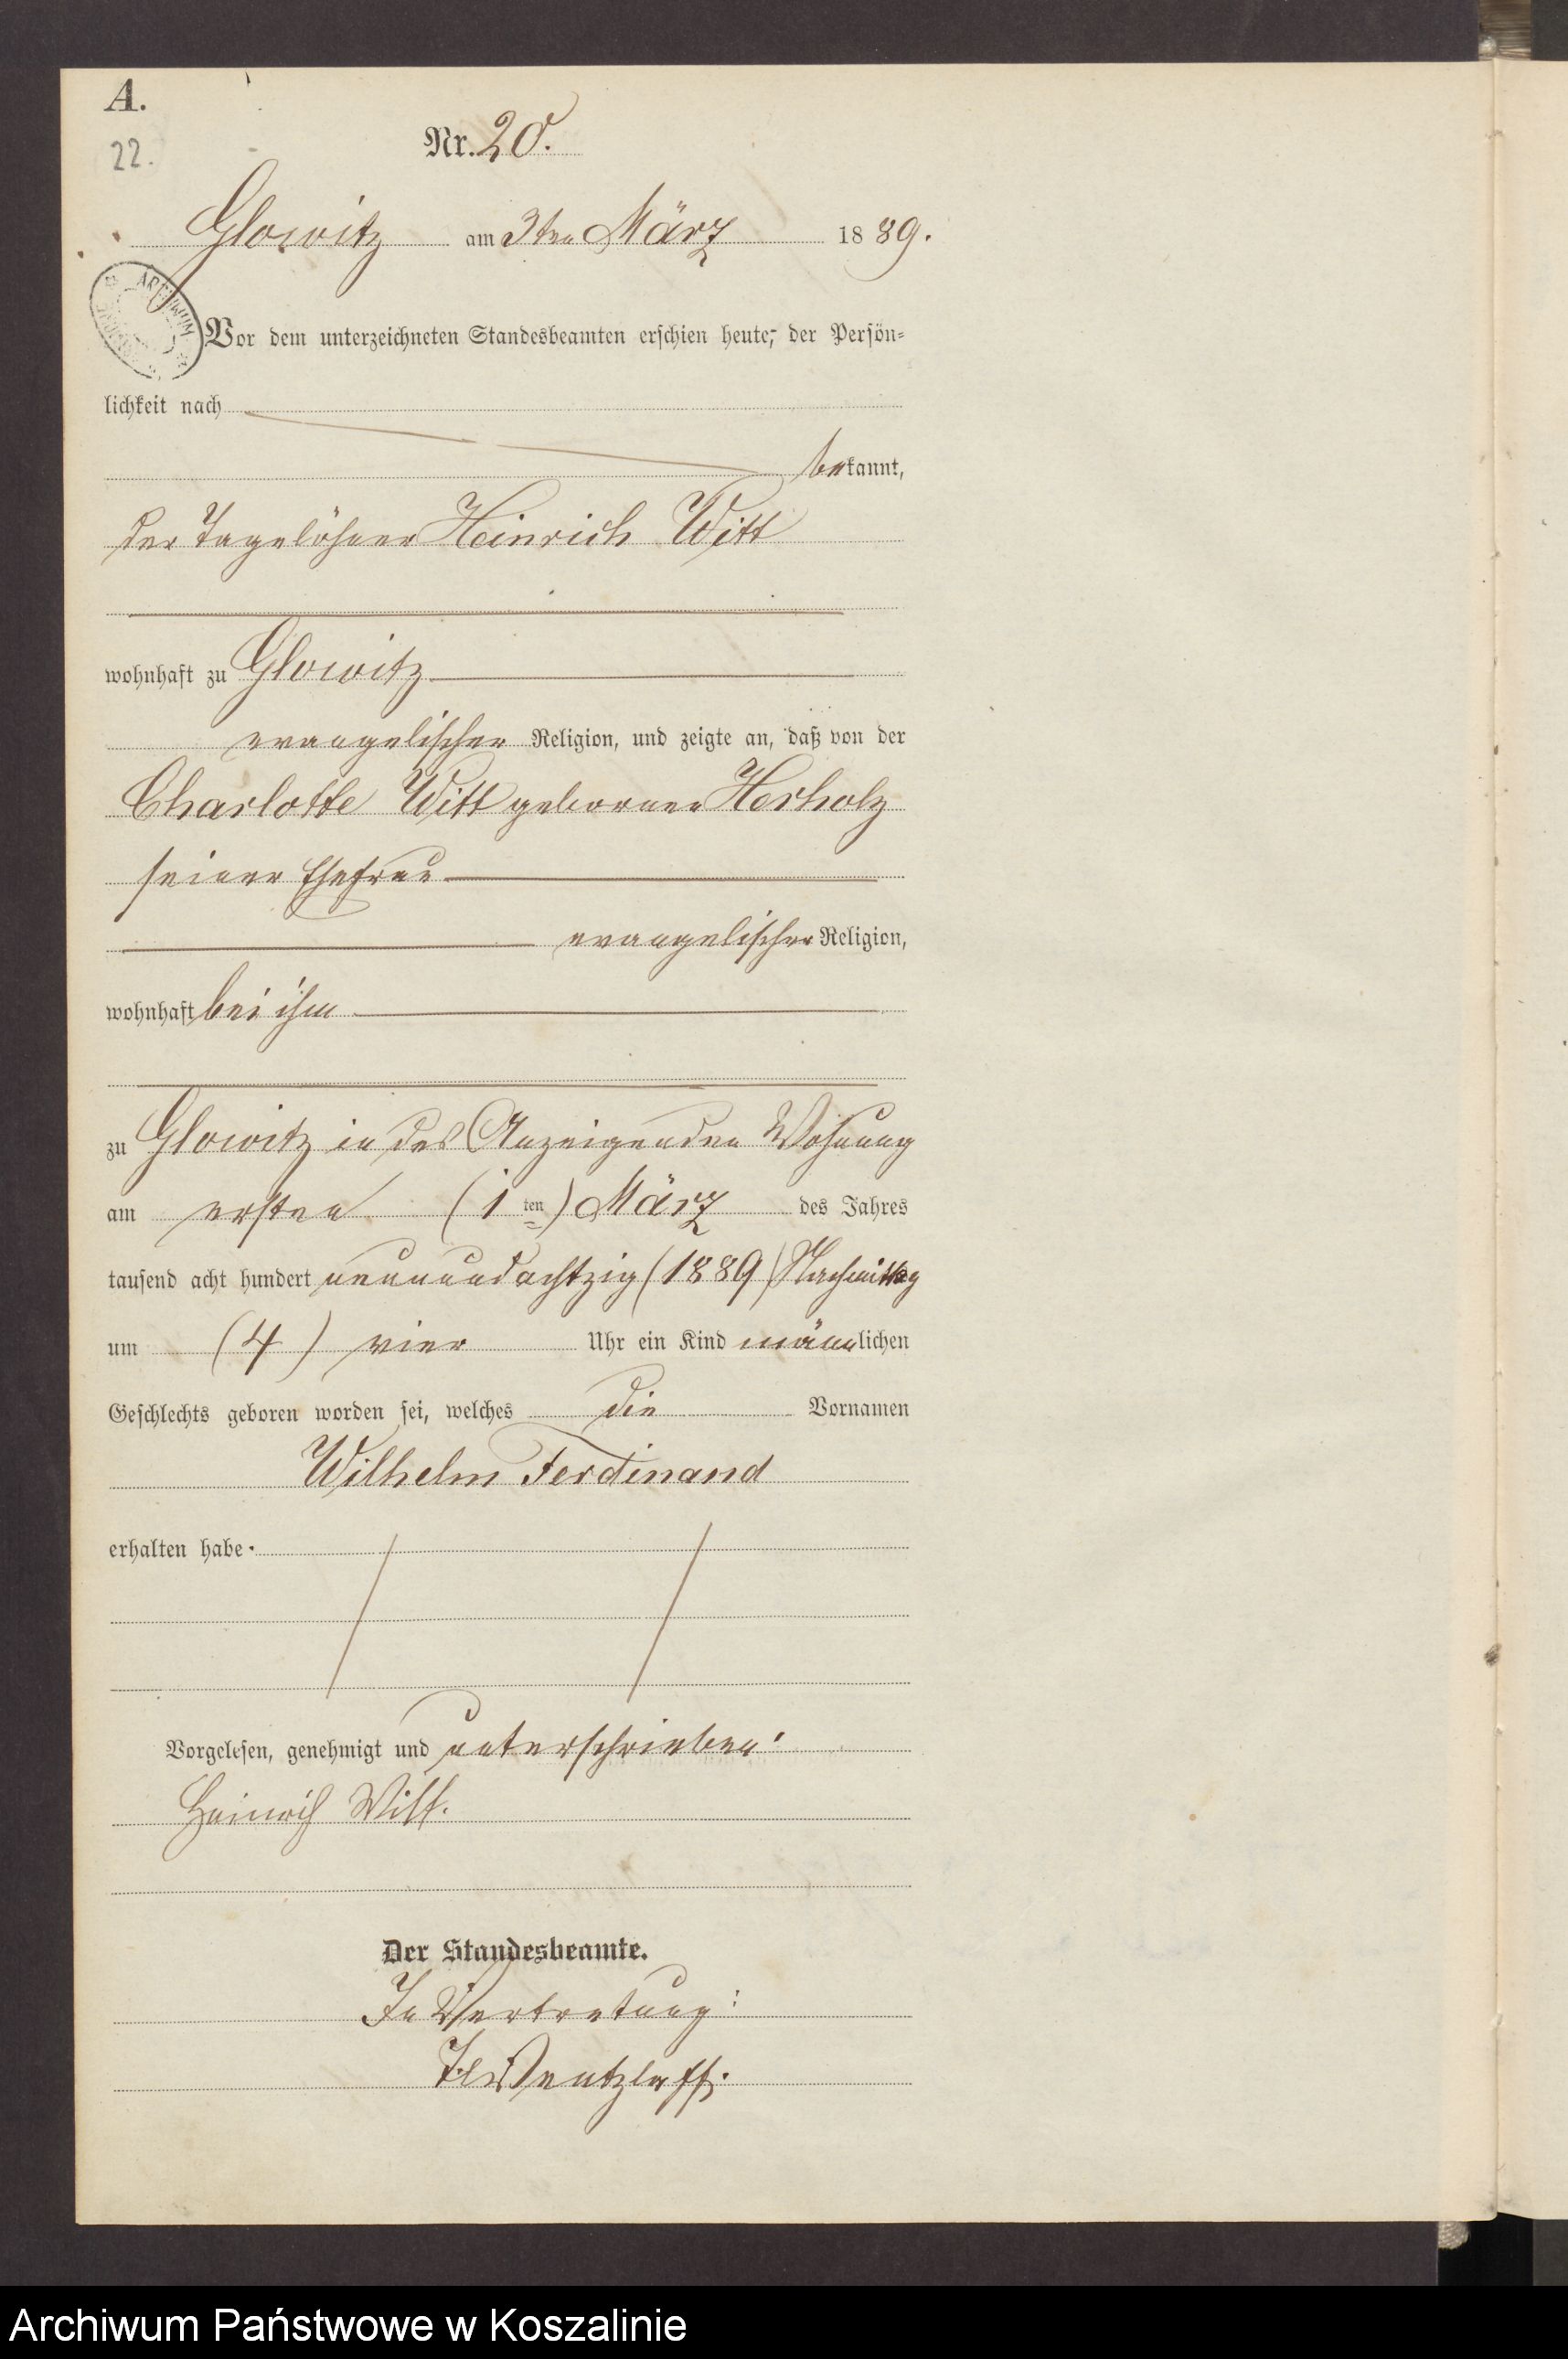 A.
22.
Nr. 20.
Glowitz am 3ten März 1889.
ARCHIWUM
Vor dem unterzeichneten Standesbeamten erschien heute, der Persön-
lichkeit nach
bekannt,
der Tagelöhner Heinrich Witt
wohnhaft zu Glowitz
evangelischer Religion, und zeigte an, daß von der
Charlotte Witt geborner Horholz
seiner Ehefrau
evangelischer Religion,
wohnhaft bei ihm
zu Glowitz in des Anzeigenden Wohnung
am ersten (1ten) März des Jahres
tausend acht hundert neunundachtzig (1889) Nachmittag
um (4) vier Uhr ein Kind männlichen
Geschlechts geboren worden sei, welches die Vornamen
Wilhelm Ferdinand
erhalten habe.
Vorgelesen, genehmigt und unterschrieben:
Heinrich Witt.
Der Standesbeamte.
In Vertretung:
Wentzlaff.
Archiwum Państwowe w Koszalinie